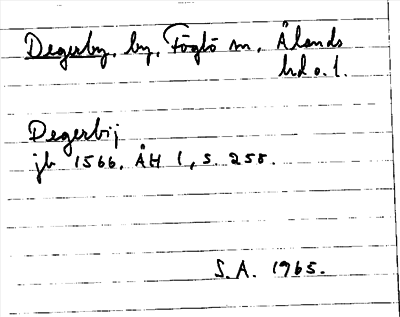 Degerby, by, Föglö sn, Ålands
hd o. l.
Degerbij
jb 1566. ÅH 1, s. 258.
S.A. 1965.